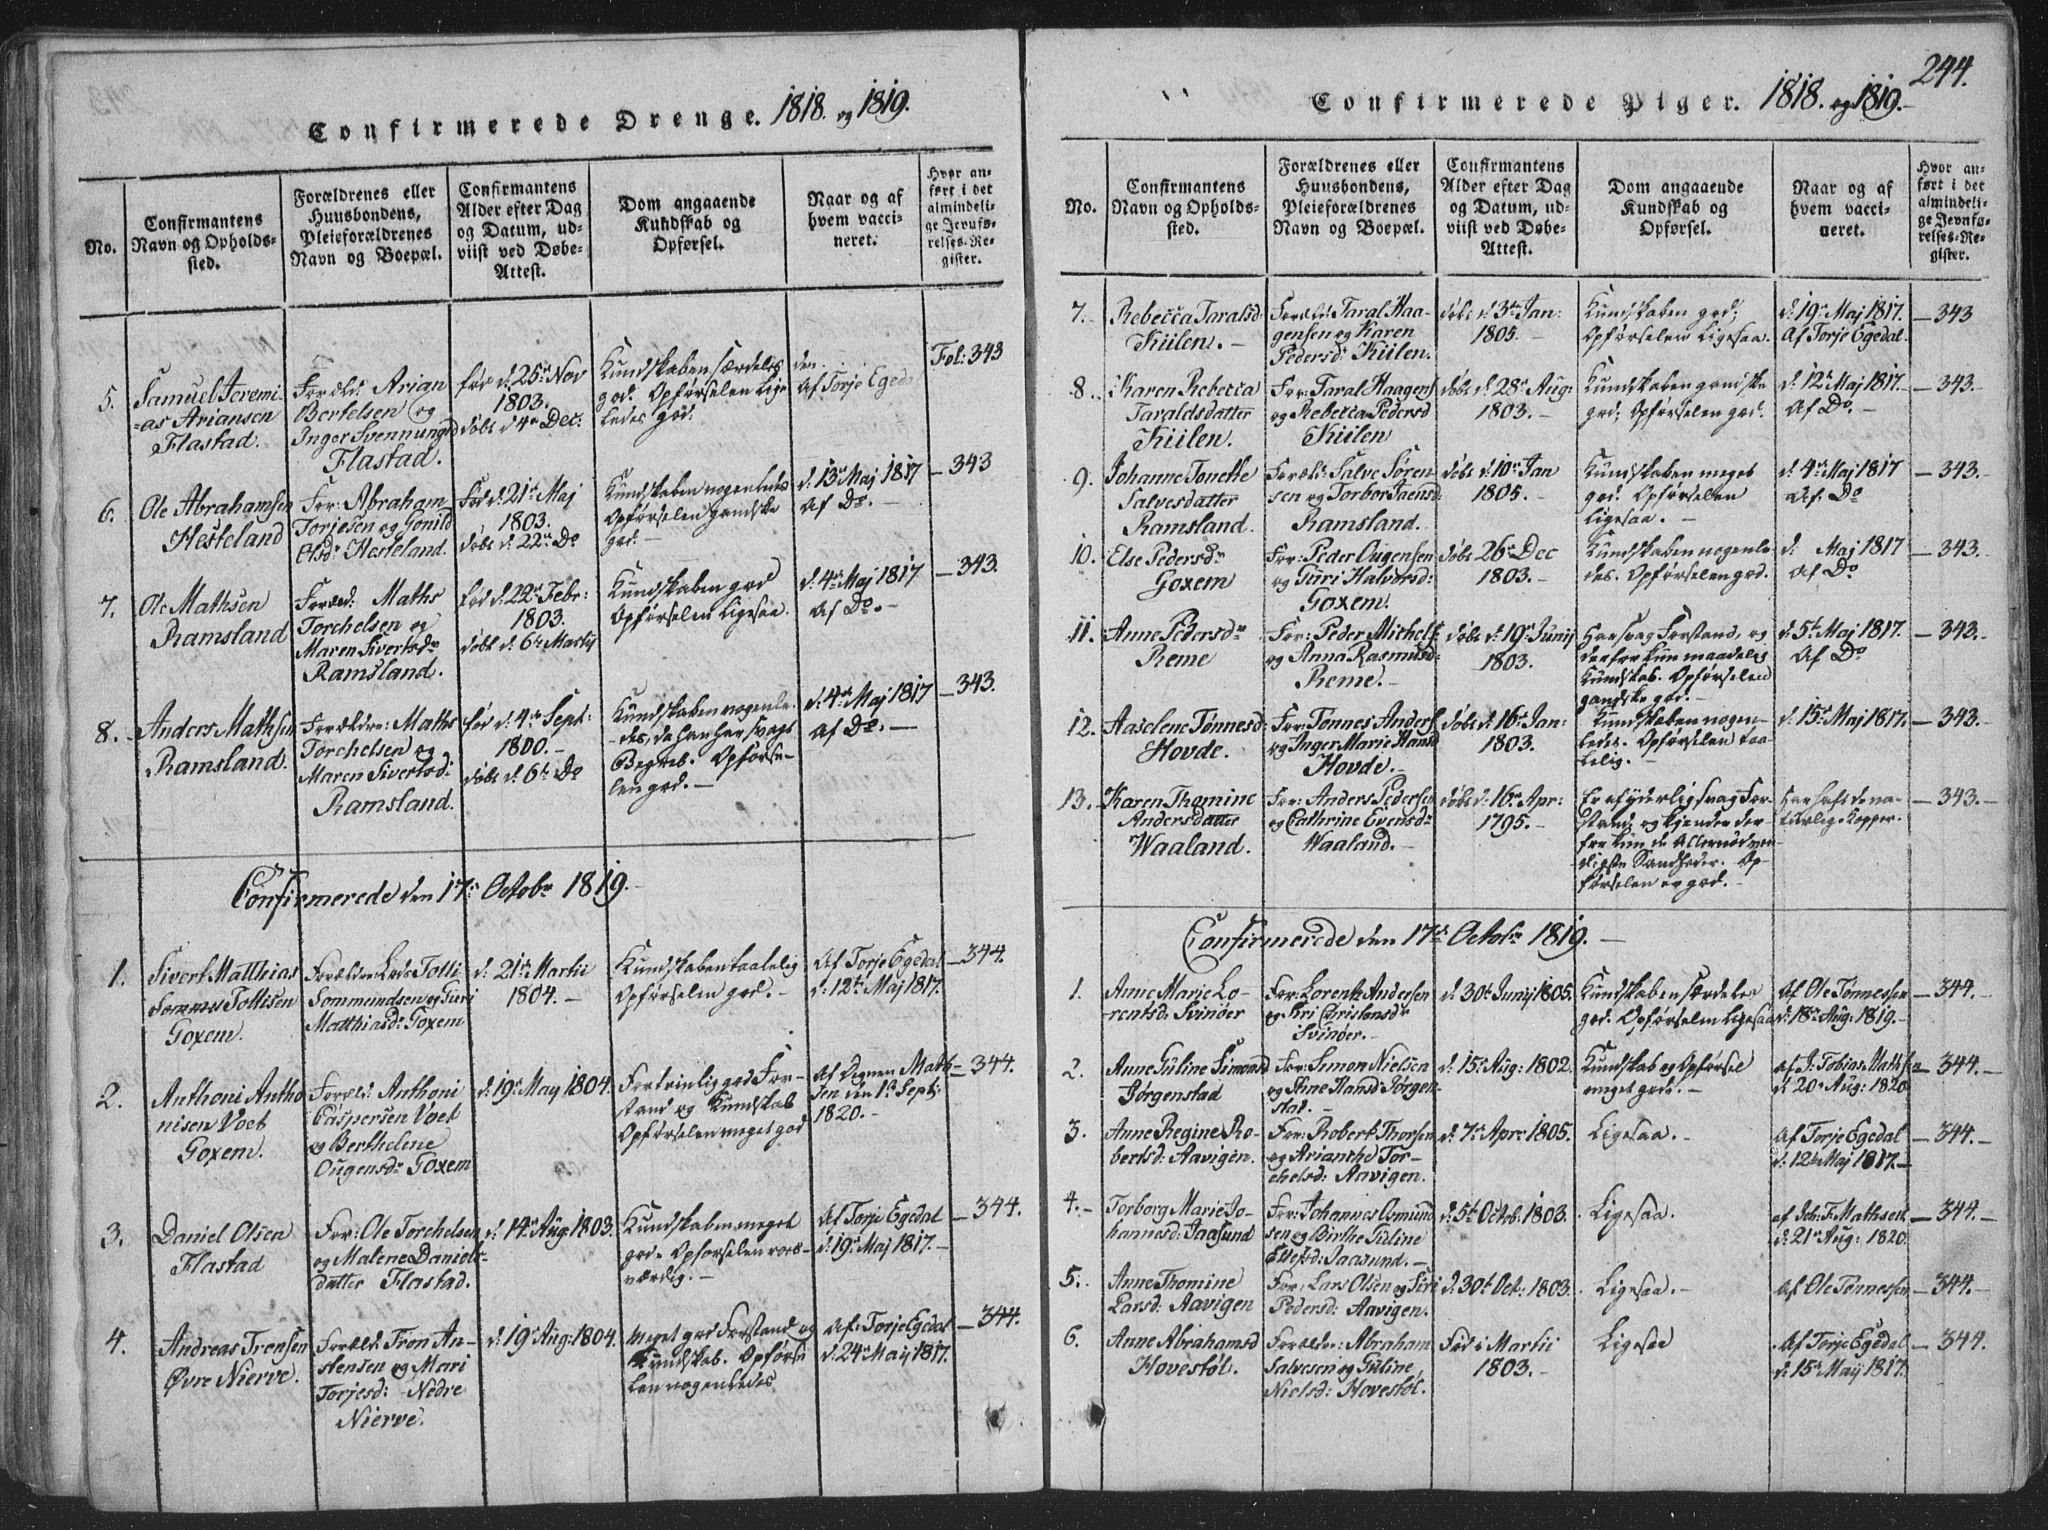 Confirmerede Drenge. 1818. og 1819.
No.
Confirmantens
Navn og Opholds-
sted.
Forældrenes eller
Huusbondens,
Pleieforældrenes
Navn og Boepæl.
Confirmantens
Alder efter Dag
og Datum, ud-
viist ved Døbe-
Attest.
Dom angaaende
Kundskab og
Opførsel.
Naar og af
hvem vacci-
neret.
Hvor an-
ført i det
almindeli-
ge Jevnfø-
relses-Re-
gister.
5.
Samuel Jeremi-
=as Ariansen
Flastad.
Foræld: Arian
Bertelsen og
Inger Svennungsd
Flastad.
fød d. 25de Nov
1803.
døbt d 4de Dec:
Kundskaben særdeles
god. Opførselen lige
ledes god.
den
Af Torje Egeda
Fol: 343
6.
Ole Abrahamsen
Hesteland
For: Abraham
Torjesen og Gonild
Olsdr Hesteland.
Fød d. 21de Maj
1803.
døbt d. 22de Do
Kundskaben nogenledes
Opførselen gandske
god. -
d. 13de Maj 1817
Af Do. -
- 343
7.
Ole Mathsen
Ramsland
Foræld: Maths
Torchelsen og
Maren Sivertsdr
Ramsland.
Fød d. 22de Febr:
1803.
døbt d. 6te Martij
Kundskaben god
Opførselen Ligesaa.
d. 4de Maj 1817
Af Do. -
- 343.
8. -
Anders Mathsen
Ramsland.
Forældre: Maths
Torchelsen og
Maren Sivertsd:
Ramsland.
fød d. 4de Sept:
1800. -
døbt d. 6te Do
Kundskaben nogenle-
des, da han har svagt
Begreb. Opførse-
len god. -
d. 4de Maj 1817
Af Do. -
- 343.
Confirmerede den 17de Octobr 1819. -
1.
Sivert Matthias
Tollisen
Goxem.
Tolli
Sommundsen og Turi
Matthiasd: Goxem
d. 21de Martii
1804. -
Kundskaben taalelig
Opførselen god. -
Af Torje Egedal
d: 12te Maj 1817.
- 344.
2.
Anthoni Antho
nisen Voet
Goxem.
Foræld: Anthoni
Caspersen Voet
og Berthelene
Ougensdr Goxem
d. 19de May 1804.
Fortrinlig god For-
stand og Kundskab
Opførselen meget god
Af Degnen Math-
sen den 1ste Sept:
1820. -
- 344.
3.
Daniel Olsen
Flastad
For: Ole Torchelsen
og Malene Daniels-
datter Flastad.
d. 14de Aug: 1803.
Kundskaben meget
god. Opførselen roes-
værdig. -
Af Torje Egedal
d. 19de Maj 1817. -
- 344.
4.
Andreas Tronsen
Øvre Nierve.
Foræld: Tron An-
stensen og Mari
Torjesd: Nedre
Nierve.
d. 19de Aug: 1804.
Meget god Forstand og
Kundskab. Opførse
len nogenledes
Af: Torje Egedal
d. 24de Maij 1817.
- 344.
244.
Confirmerede Piger. 1818. og 1819. -
No.
Confirmantens
Navn og Opholds-
sted.
Forældrenes eller
Huusbondens,
Pleieforældrenes
Navn og Boepæl.
Confirmantens
Alder efter Dag
og Datum, ud-
viist ved Døbe-
Attest.
Dom angaaende
Kundskab og
Opførsel.
Naar og af
hvem vacci-
neret.
Hvor an-
ført i det
almindeli-
ge Jevnfø-
relses-Re-
gister.
7. -
Rebecca Taralsd
Kiilen. -
Foræld: Taral Haa-
gensen og Karen
Pedersd: Kiilen.
døbt d. 3de Jan:
1805. -
Kundskaben god;
Opførselen Ligesaa.
d. 19de Maj 1817.
Af Torje Egedal.
- 343
8. -
Karen Rebecca
Taraldsdatter
Kiilen.
For: Taral Haagens
og Rebecca Pedersd
Kiilen
døbt d. 28de Aug:
1803. -
Kundskaben gandske
god; Opførselen god.
d. 12te Maj 1817.
Af Do. -
- 343.
9.
Johanne Tonethe
Salvesdatter
Ramsland.
Foræld: Salve Søren-
sen og Torbor Jaensd:
Ramsland.
døbt d. 10de Jan
1805. -
Kundskaben meget
god. Opførselen
ligesaa. -
d. 4de Maj 1817
Af Do
- 343.
10. -
Else Pedersdr
Goxem
For: Peder Ougensen
og Turi Halvorsd:
Goxem.
døbt 26de Dec
1803. -
Kundskaben nogenle-
des. Opførselen god.
d. Maj 1817
Af Do
- 343.
11. -
Anne Pedersdr
Reme
For: Peder Michels
og Anna Rasmusd:
Reme. -
døbt d. 19de Junij
1803. -
Har svag Forstand, og
derfor kun maadelig
Kundskab. Opførselen
gandske god. -
d. 5te Maj 1817.
Af Do
- 343. -
12. -
Aaselene Tønnesd:
Hovde.
For: Tønnes Anders
og Inger Marie Hansd
Hovde. -
døbt d. 16de Jan:
1803. -
Kundskaben nogen-
ledes. Opførselen taa-
lelig. -
d. 15de Maj 1817.
- 343. -
13. -
Karen Thomine
Andersdatter
Waaland.
For: Anders Pedersen
og Cathrine Evensdr
Waaland.
døbt d. 16de Apr:
1795. -
Er af yderlig svag For-
stand, og kjender der-
for kun de Allernødven-
digste Sandheder. Op-
førselen er god. -
Har haft de na-
turlig Kopper.
- 343. -
Confirmerede den 17de Octobr 1819. -
1.
Anne Marie Lo-
rentsd: Svinøer
For: Lorentz Andersen
og Siri Christensdr
Svinøer.
d. 30te Junij 1805.
Kundskaben særdeles
god. Opførselen Ligesaa
Af Ole Tønnessen
d: 18de Aug: 1819. -
- 344. -
2.
Anne Guline Simonsd
Jørgenstad
For: Simon Nielsen
og Stine Hansd: Jørgen-
stad. -
d. 15de Aug: 1802.
Kundskab og Opførsel
meget godt. -
af J: Tobias Mathsen
d. 20de Aug: 1820
- 344. -
3.
Anne Regine Ro-
bertsd: Aavigen.
For: Robert Thorsen
og Arianthe Tor-
chelsd: Aavigen.
d. 7de Apr: 1805.
Ligesaa. -
Af Torje Egedal
d. 12te Maj 1817. -
- 344. -
4. -
Torborg Marie Jo-
hannesd: Jaasund
For: Johannes Osmund
sen og Birthe Guline
Ellefsd: Jaasund. -
d. 5te Octob. 1803.
Ligesaa.
af Joh: T. Mathsen
d. 21de Aug: 1820
- 344. -
5. -
Anne Thomine
Larsd: Aavigen
For: Lars Olsen og Siri
Pedersd: Aavigen.
d. 30te Oct: 1803.
Ligesaa. -
Af Ole Tønnessen
- 344. -
6.
Anne Abrahamsd
Hovestøl. -
Forældre: Abraham
Salvesen og Guline
Nielsd: Hovestøl.
Fød i Martii
1803. -
Ligesaa
Af Torje Egedal
d. 15de Maij 1817.
- 344.